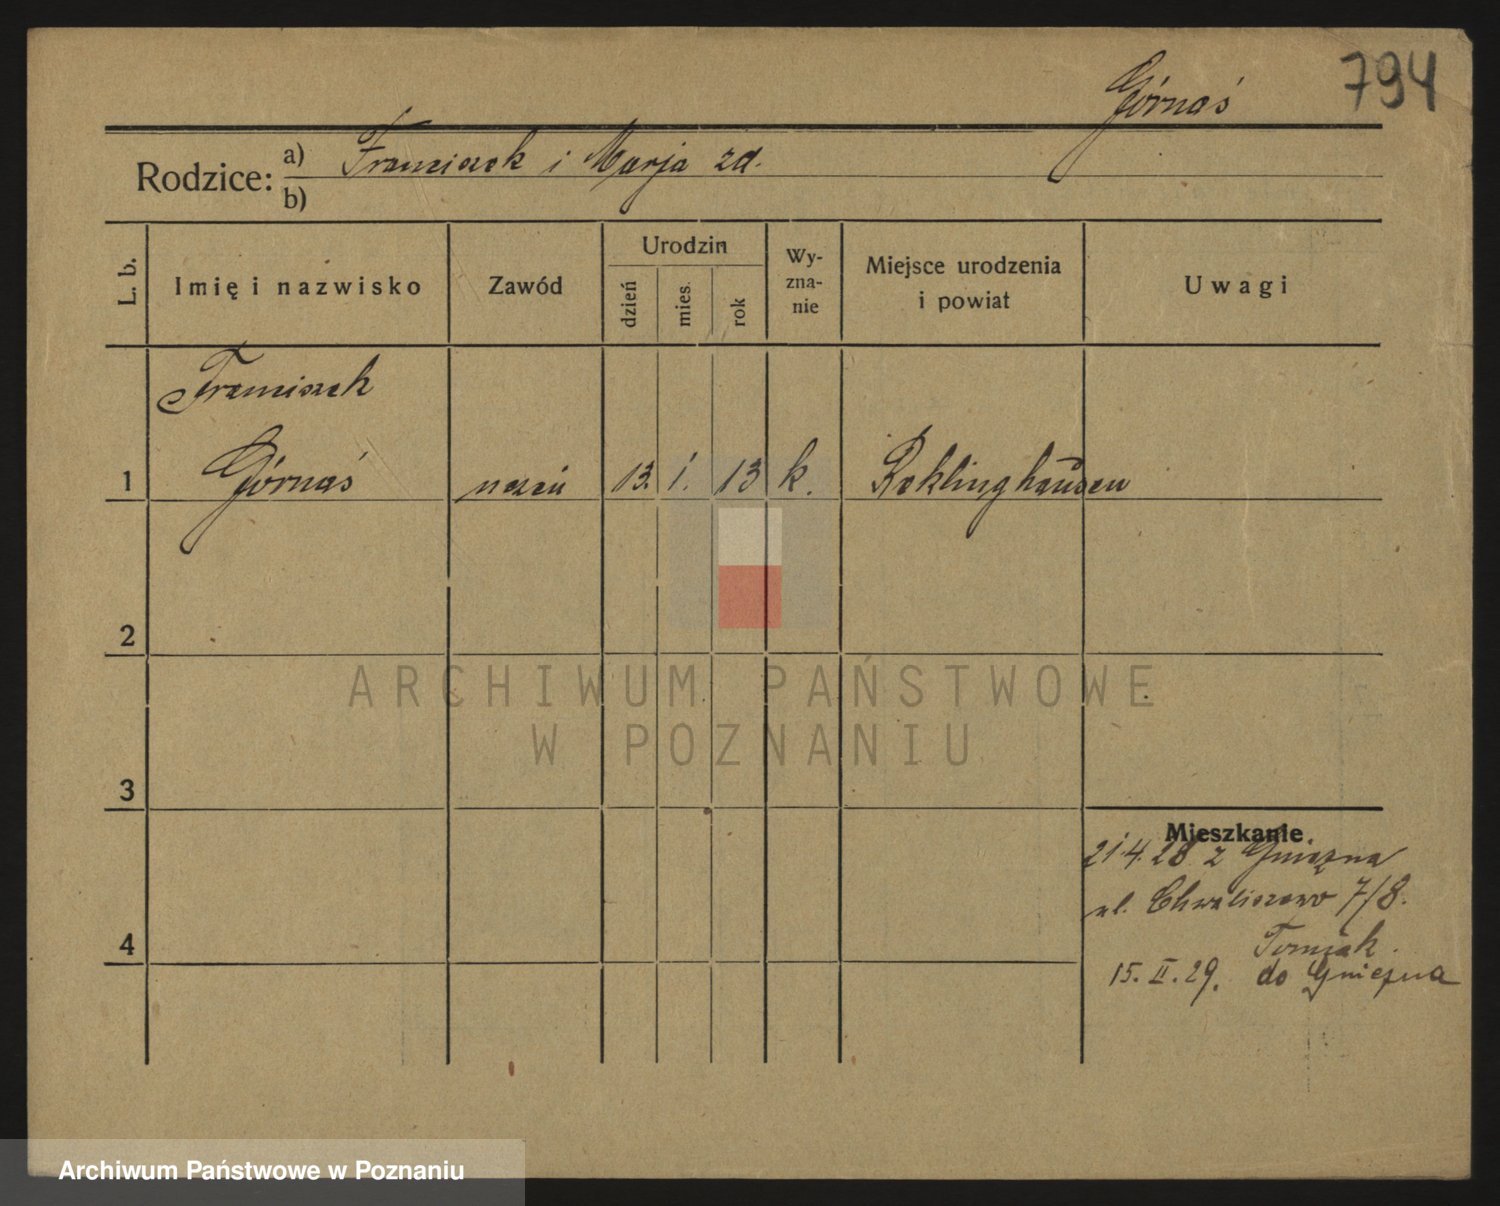 794
Górnaś
Rodzice: a) Franciszek i Marja zd.
b)
L. b.
Imię i nazwisko
Zawód
Urodzin
dzień
mies.
rok
Wy-
zna-
nie
Miejsce urodzenia
i powiat
Uwagi
Franciszek
1 Górnaś uczeń 13. 1. 13 k. Reklinghausen
2
3
4
Mieszkanie.
21.4.28 z Gniezna
ul. Chwaliszewo 7/8.
Tomiak.
15. II. 29. do Gniezna
ARCHIWUM PAŃSTWOWE
W POZNANIU
Archiwum Państwowe w Poznaniu